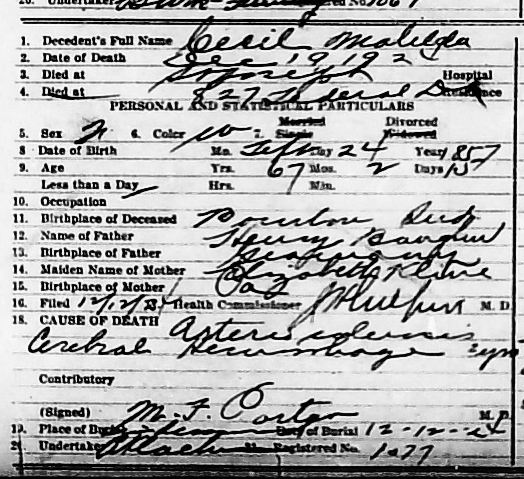 20. Undertaker Registered No. 1067
1. Decedent's Full Name Cecil Matilda
2. Date of Death Dec 19 192
3. Died at St Joseph Hospital
4. Died at 827 Federal Residence
PERSONAL AND STATISTICAL PARTICULARS
Married Divorced
5. Sex 6. Color W 7. Single Widowed
8 Date of Birth Mo. Sept Day 24 Year 1857
9. Age Yrs. 67 Mos. 2 Days 15
Less than a Day Hrs. Min.
10. Occupation
11. Birthplace of Deceased Bourbon Ind
12. Name of Father Henry
13. Birthplace of Father Germany
14. Maiden Name of Mother Elizabeth Kline
15. Birthplace of Mother Pa
16. Filed Health Commissioner M. D.
18. CAUSE OF DEATH
Cerebral Hemorrhage
Contributory
(Signed) M. F. Porter M. D.
19. Place of Burial Date of Burial 12-12-24
20. Undertaker 21. Registered No. 1077